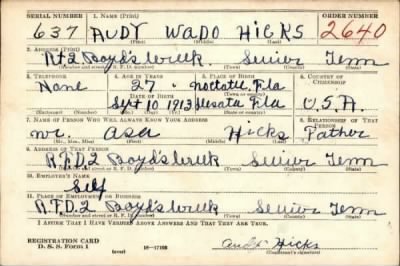 SERIAL NUMBER 1. NAME (Print) ORDER NUMBER
637 AUDY WADO HICKS 2640
(First) (Middle) (Last)
2. ADDRESS (Print)
Rt 2 Boyd's Creek Sevier Tenn
(Number and street or R. F. D. number) (Town) (County) (State)
3. TELEPHONE 4. AGE IN YEARS 5. PLACE OF BIRTH 6. COUNTRY OF CITIZENSHIP
None 27 Fla
DATE OF BIRTH
Sept 10 1913 Fla U.S.A.
(Mo.) (Day) (Yr.) (State or country)
7. NAME OF PERSON WHO WILL ALWAYS KNOW YOUR ADDRESS 8. RELATIONSHIP OF THAT PERSON
Mr. Asa Hicks Father
(Mr., Mrs., Miss) (First) (Middle) (Last)
9. ADDRESS OF THAT PERSON
R.F.D. 2 Boyd's Creek Sevier Tenn
(Number and street or R. F. D. number) (Town) (County) (State)
10. EMPLOYER'S NAME
Self
11. PLACE OF EMPLOYMENT OR BUSINESS
R.F.D. 2 Boyd's Creek Sevier Tenn
(Number and street or R. F. D. number) (Town) (County) (State)
I AFFIRM THAT I HAVE VERIFIED ABOVE ANSWERS AND THAT THEY ARE TRUE.
REGISTRATION CARD
D. S. S. Form 1 (over) 16—17105 Audy Hicks
(Registrant's signature)